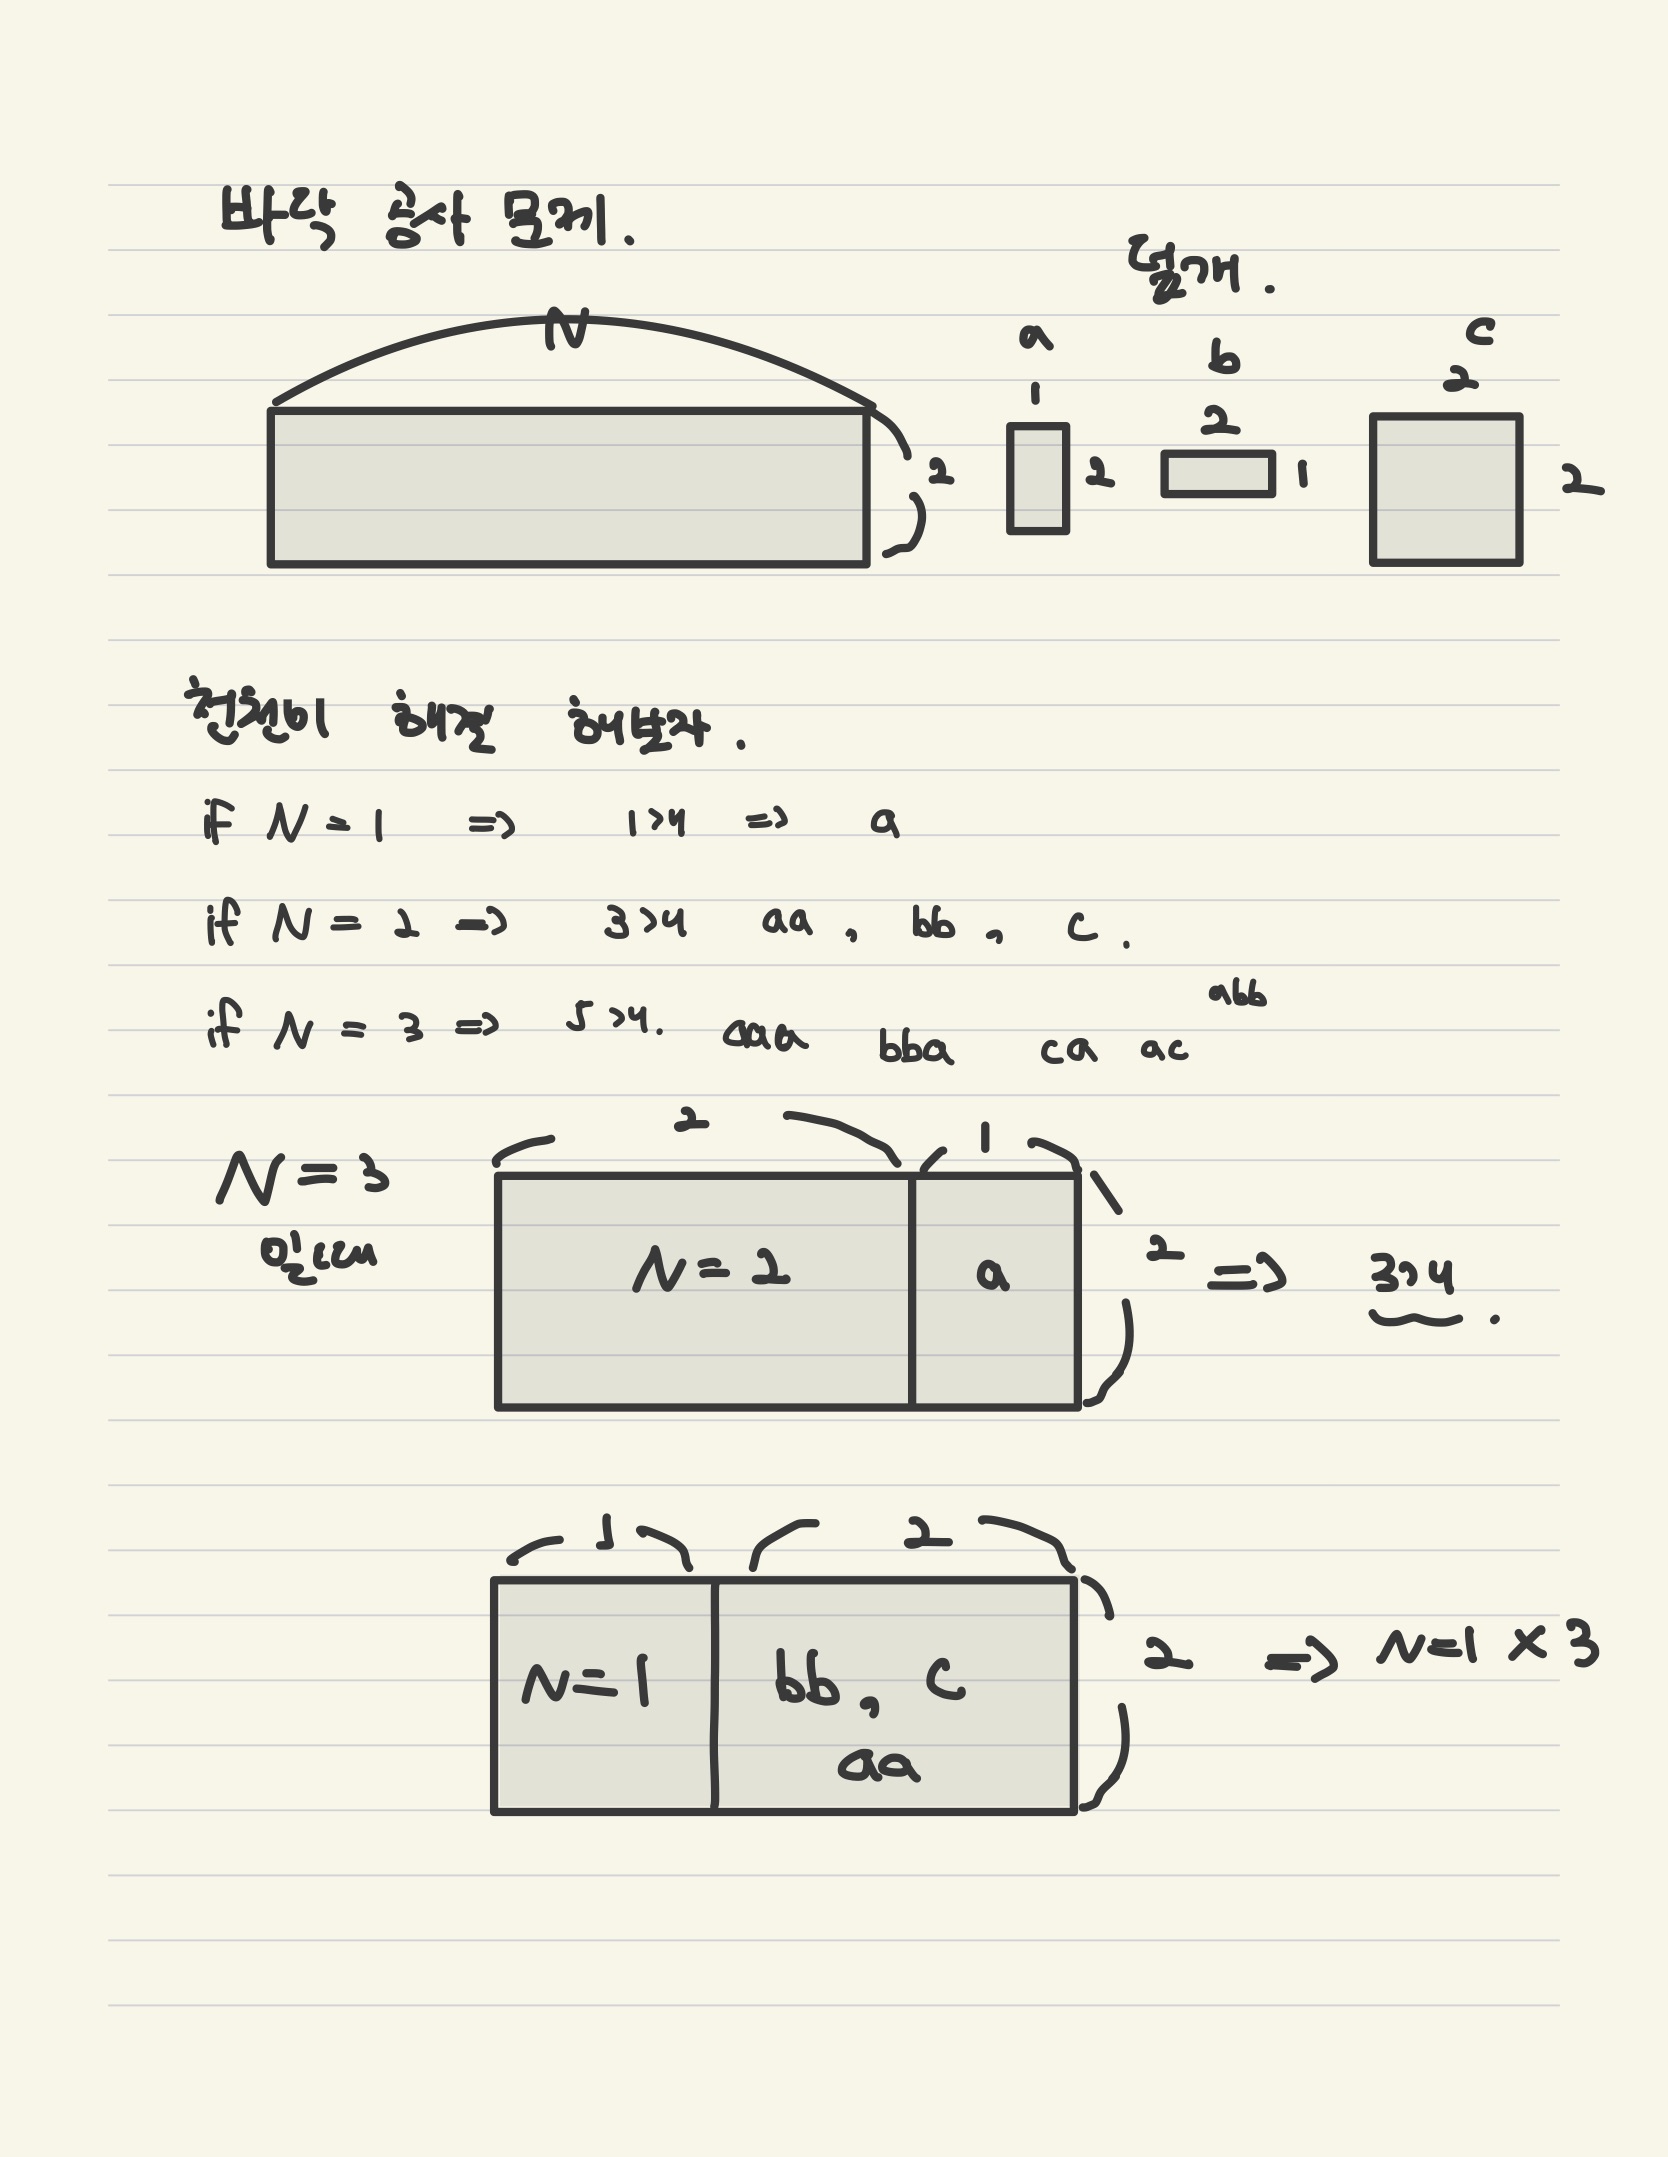 바닥 공사 문제.
덮개.
N
2
a
1
2
b
2
1
c
2
2
천천히 해결 해보자.
if N = 1 => 1가지 => a
if N = 2 => 3가지 aa, bb, c.
if N = 3 => 5가지. aaa bba ca ac abb
N = 3
일때
2
1
N = 2
a
2 => 3가지.
1
2
N=1
bb, c
aa
2 => N=1 × 3